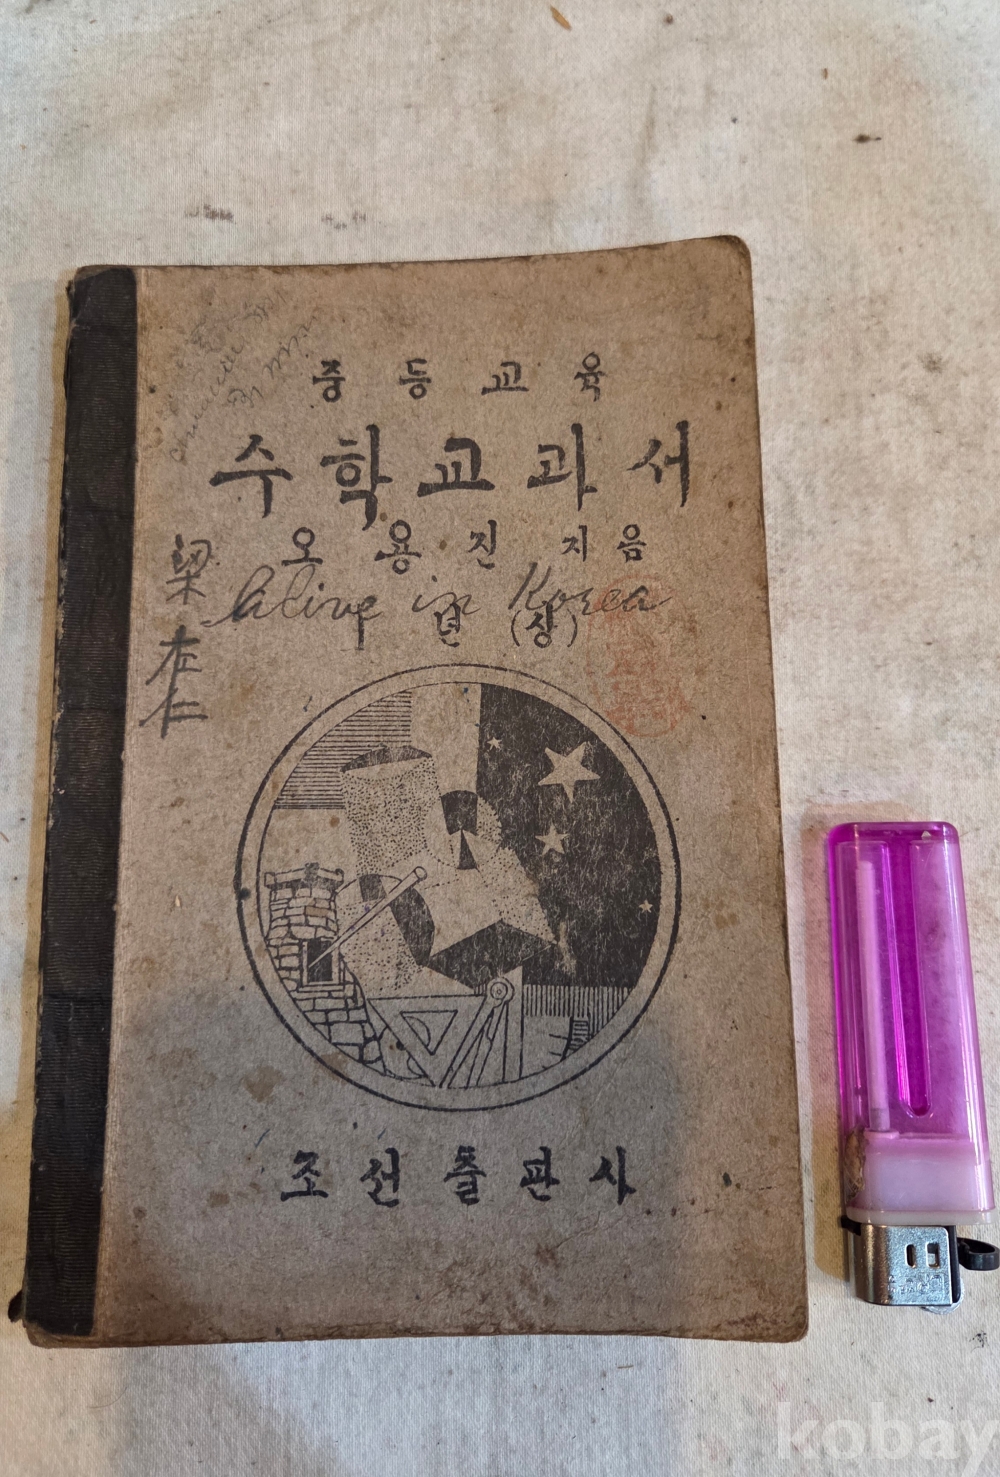 중등교육
수학교과서
오용진 지음
alive in Korea
년 (상)
梁在仁
조선출판사
kobay